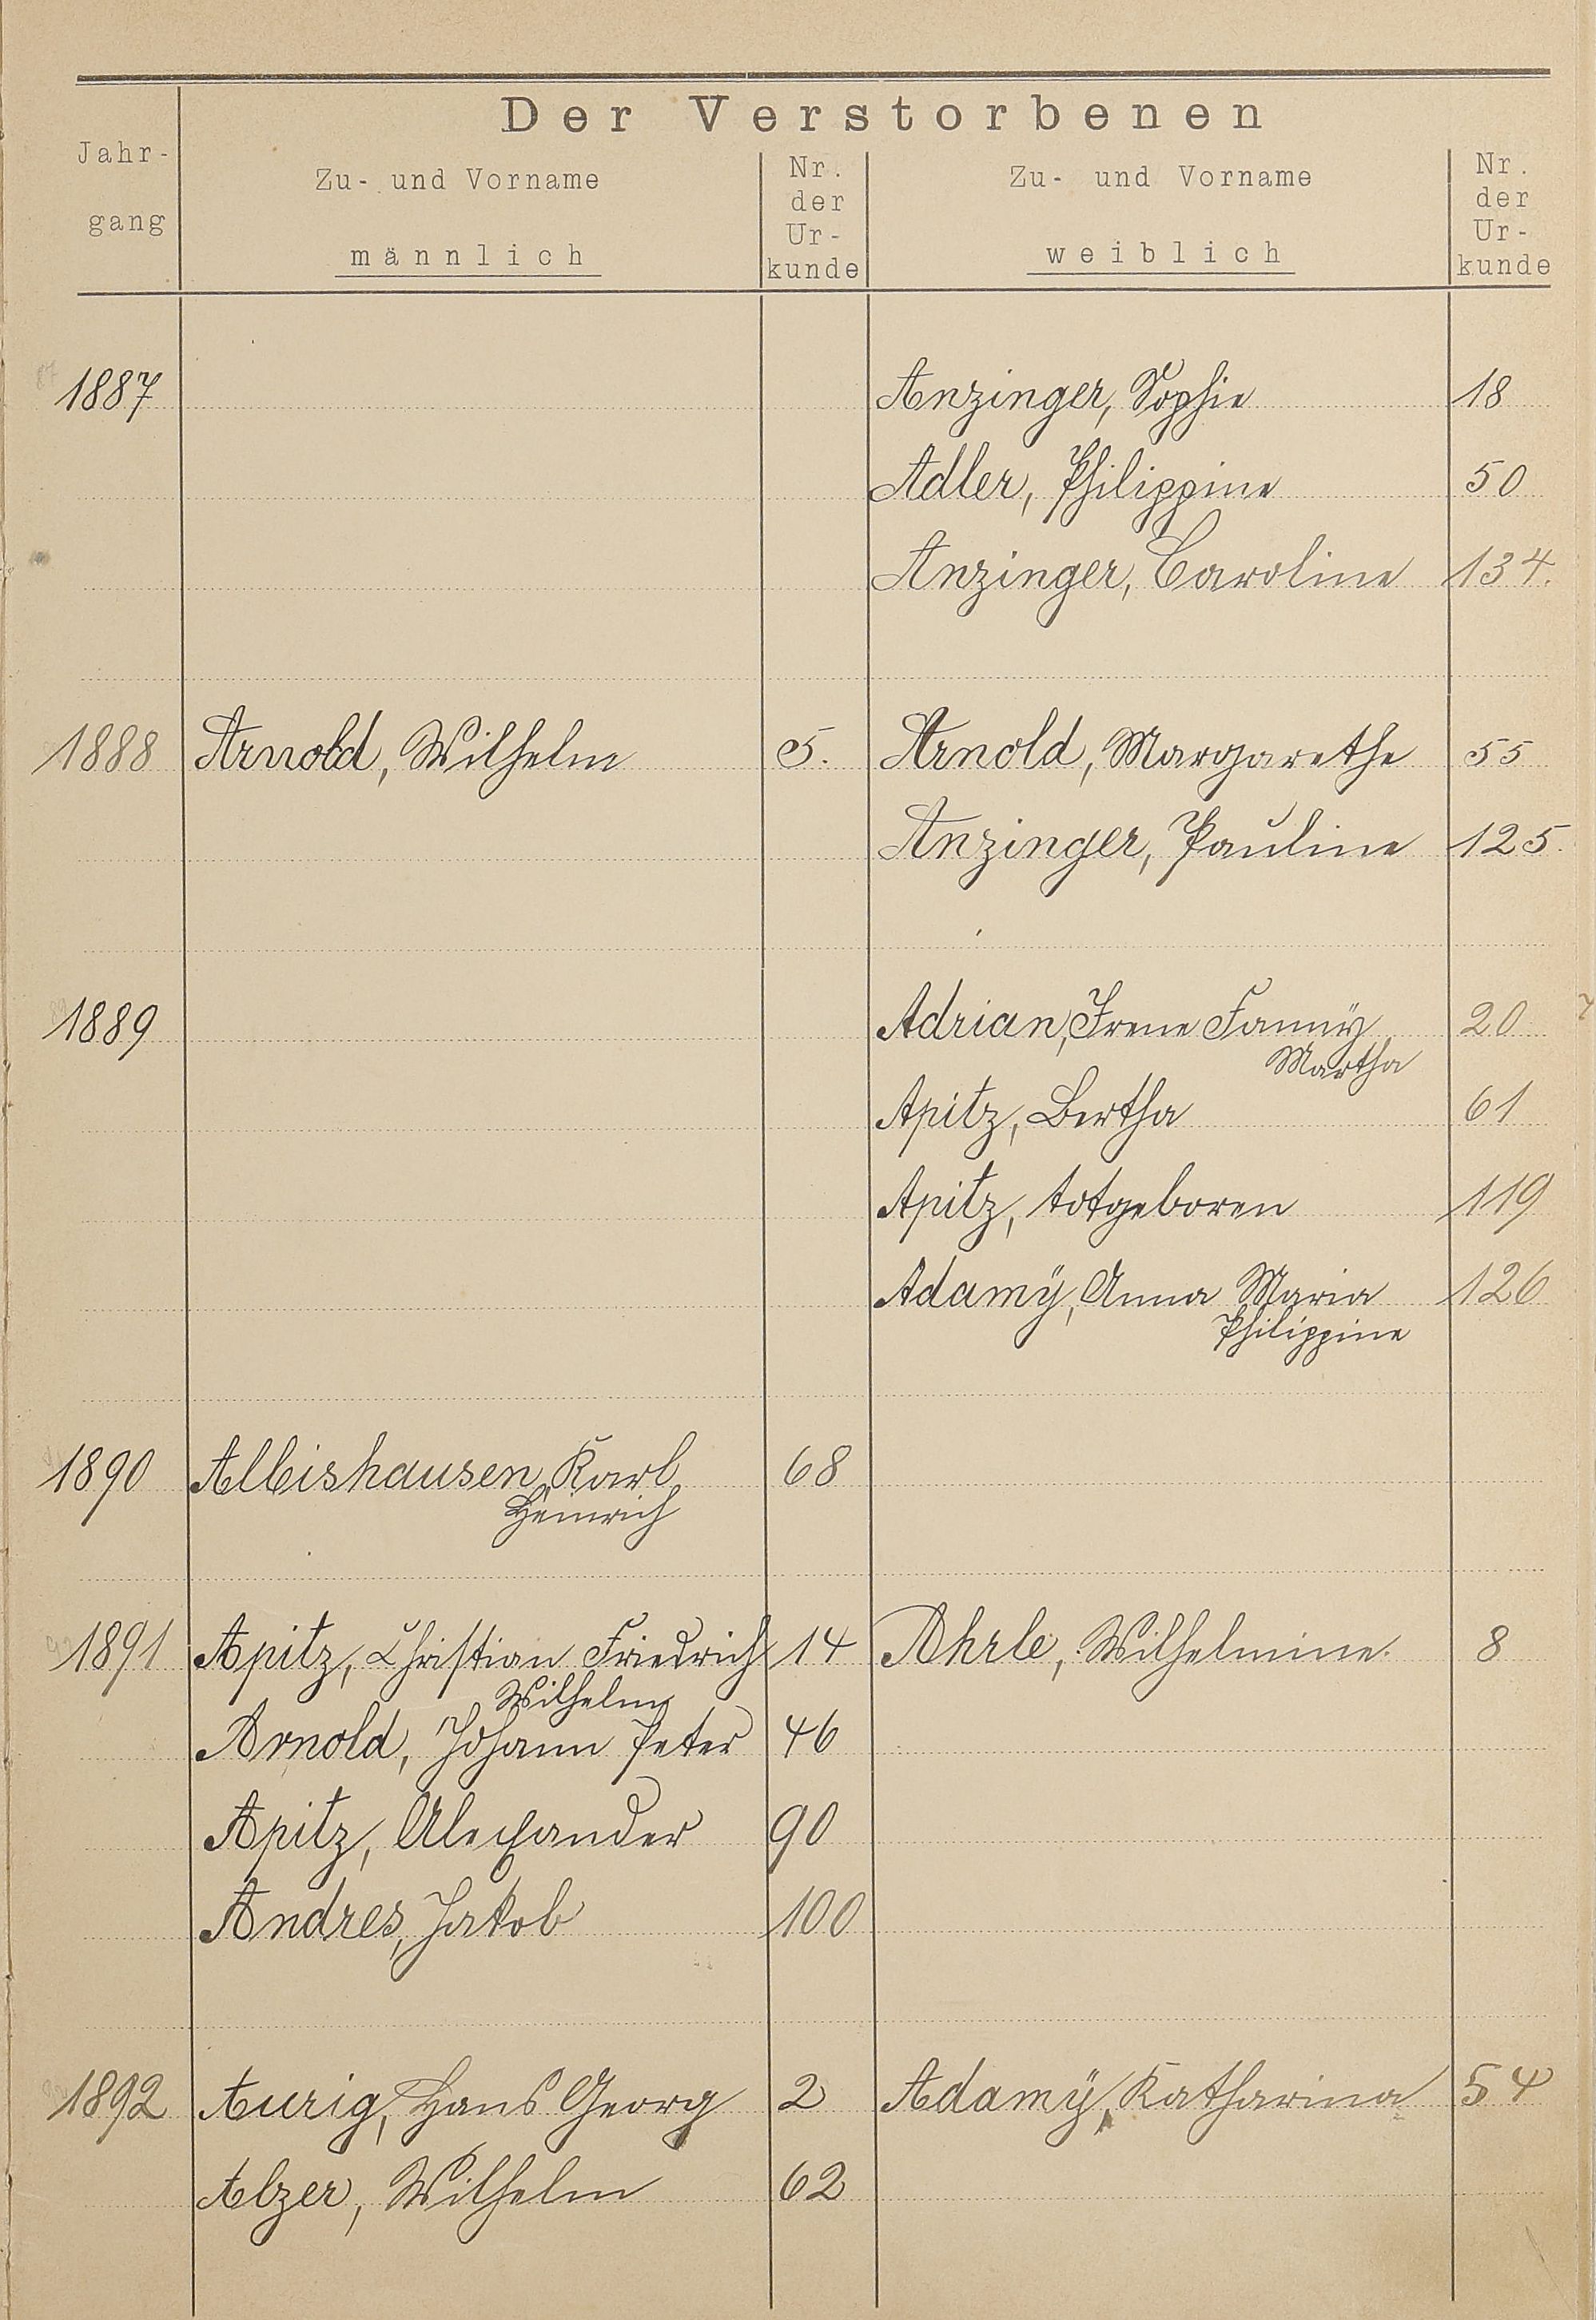 Der Verstorbenen
Jahr-
gang
Zu- und Vorname
männlich
Nr.
der
Ur-
kunde
Zu- und Vorname
weiblich
Nr.
der
Ur-
kunde
1887 Anzinger, Sophie 18
Adler, Philippine 50
Anzinger, Caroline 134.
1888 Arnold, Wilhelm 5. Arnold, Margarethe 55
Anzinger, Pauline 125.
1889 Adrian, Irene Fannÿ 20
Martha
Apitz, Bertha 61
Apitz, totgeboren 119
Adamÿ, Anna Maria 126
Philippine
1890 Albishausen, Karl 68
Heinrich
1891 Apitz, Christian Friedrich 14 Ahrle, Wilhelmine. 8
Wilhelm
Arnold, Johann Peter 46
Apitz, Alexander 90
Andres, Jakob 100
1892 Aurig, Hans Georg 2 Adamÿ, Katharina 54
Alzer, Wilhelm 62